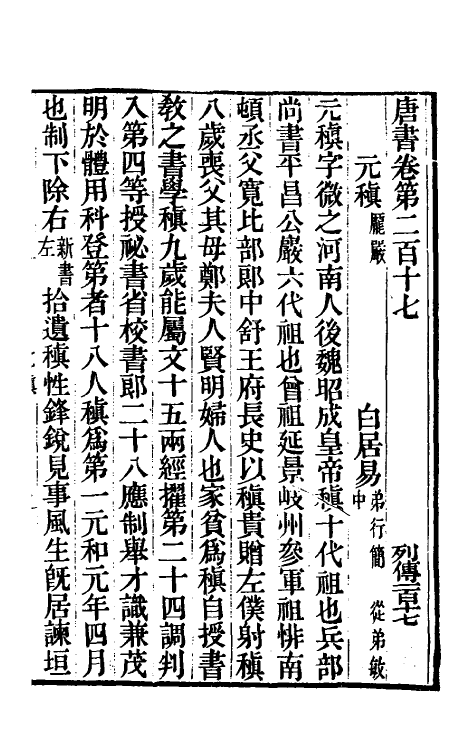 唐書卷第二百十七 列傳一百六十七
元稹 龐嚴 白居易 弟行簡 從弟敏中
元稹字微之河南人後魏昭成皇帝稹十代祖也兵部
尚書平昌公巖六代祖也曾祖延景岐州參軍祖悱南
頓丞父寬比部郎中舒王府長史以稹貴贈左僕射稹
八歲喪父其母鄭夫人賢明婦人也家貧爲稹自授書
敎之書學稹九歲能屬文十五兩經擢第二十四調判
入第四等授祕書省校書郎二十八應制舉才識兼茂
明於體用科登第者十八人稹爲第一元和元年四月
也制下除右新書左拾遺稹性鋒銳見事風生旣居諫垣